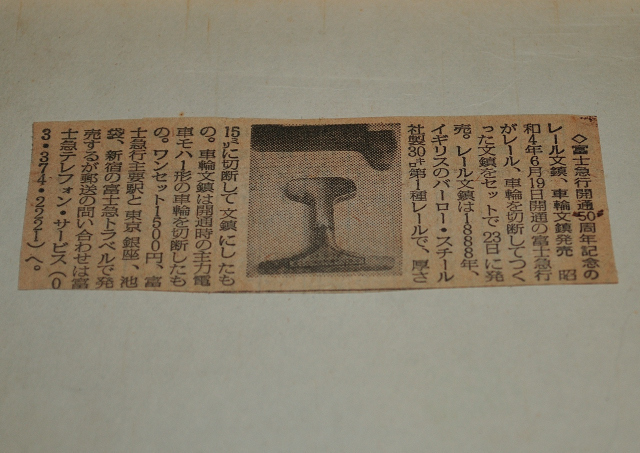 ◇富士急行開通50周年記念の
レール文鎮、車輪文鎮発売 昭
和4年6月19日開通の富士急行
がレール、車輪を切断してつく
った文鎮をセットで23日に発
売。レール文鎮は1888年、
イギリスのバーロー・スチール
社製30㌔第1種レールで、厚さ
15㍉に切断して文鎮にしたも
の。車輪文鎮は開通時の主力電
車モハ1形の車輪を切断したも
の。ワンセット1500円、富
士急行主要駅と東京、銀座、池
袋、新宿の富士急トラベルで発
売するが郵送の問い合わせは富
士急テレフォン・サービス(0
3・374・2221)へ。